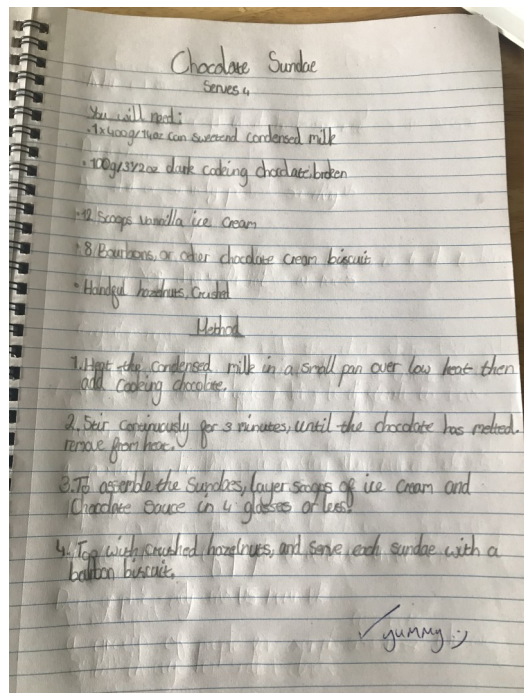 Chocolate Sundae
Serves 4
You will need:
• 1x400g/14oz can sweetend condensed milk
• 100g/3½oz dark cooking chocolate, broken
• 12 scoops vanilla ice cream
• 8 Bourbons, or other chocolate cream biscuit
• Handful hazelnuts, crushed
Method
1. Heat the condensed milk in a small pan over low heat then
add cooking chocolate.
2. Stir continuously for 3 minutes, until the chocolate has melted.
remove from heat.
3. To assemble the sundaes, layer scoops of ice cream and
Chocolate sauce in 4 glasses or less!
4. Top with crushed hazelnuts, and serve each sundae with a
biscuit.
✓ yummy :)